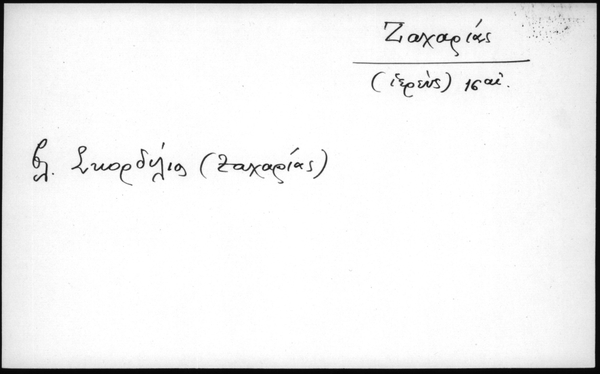 Ζαχαρίας
(ἱερεύς) 16 αἰ.
βλ. Σκορδύλιος (Ζαχαρίας)